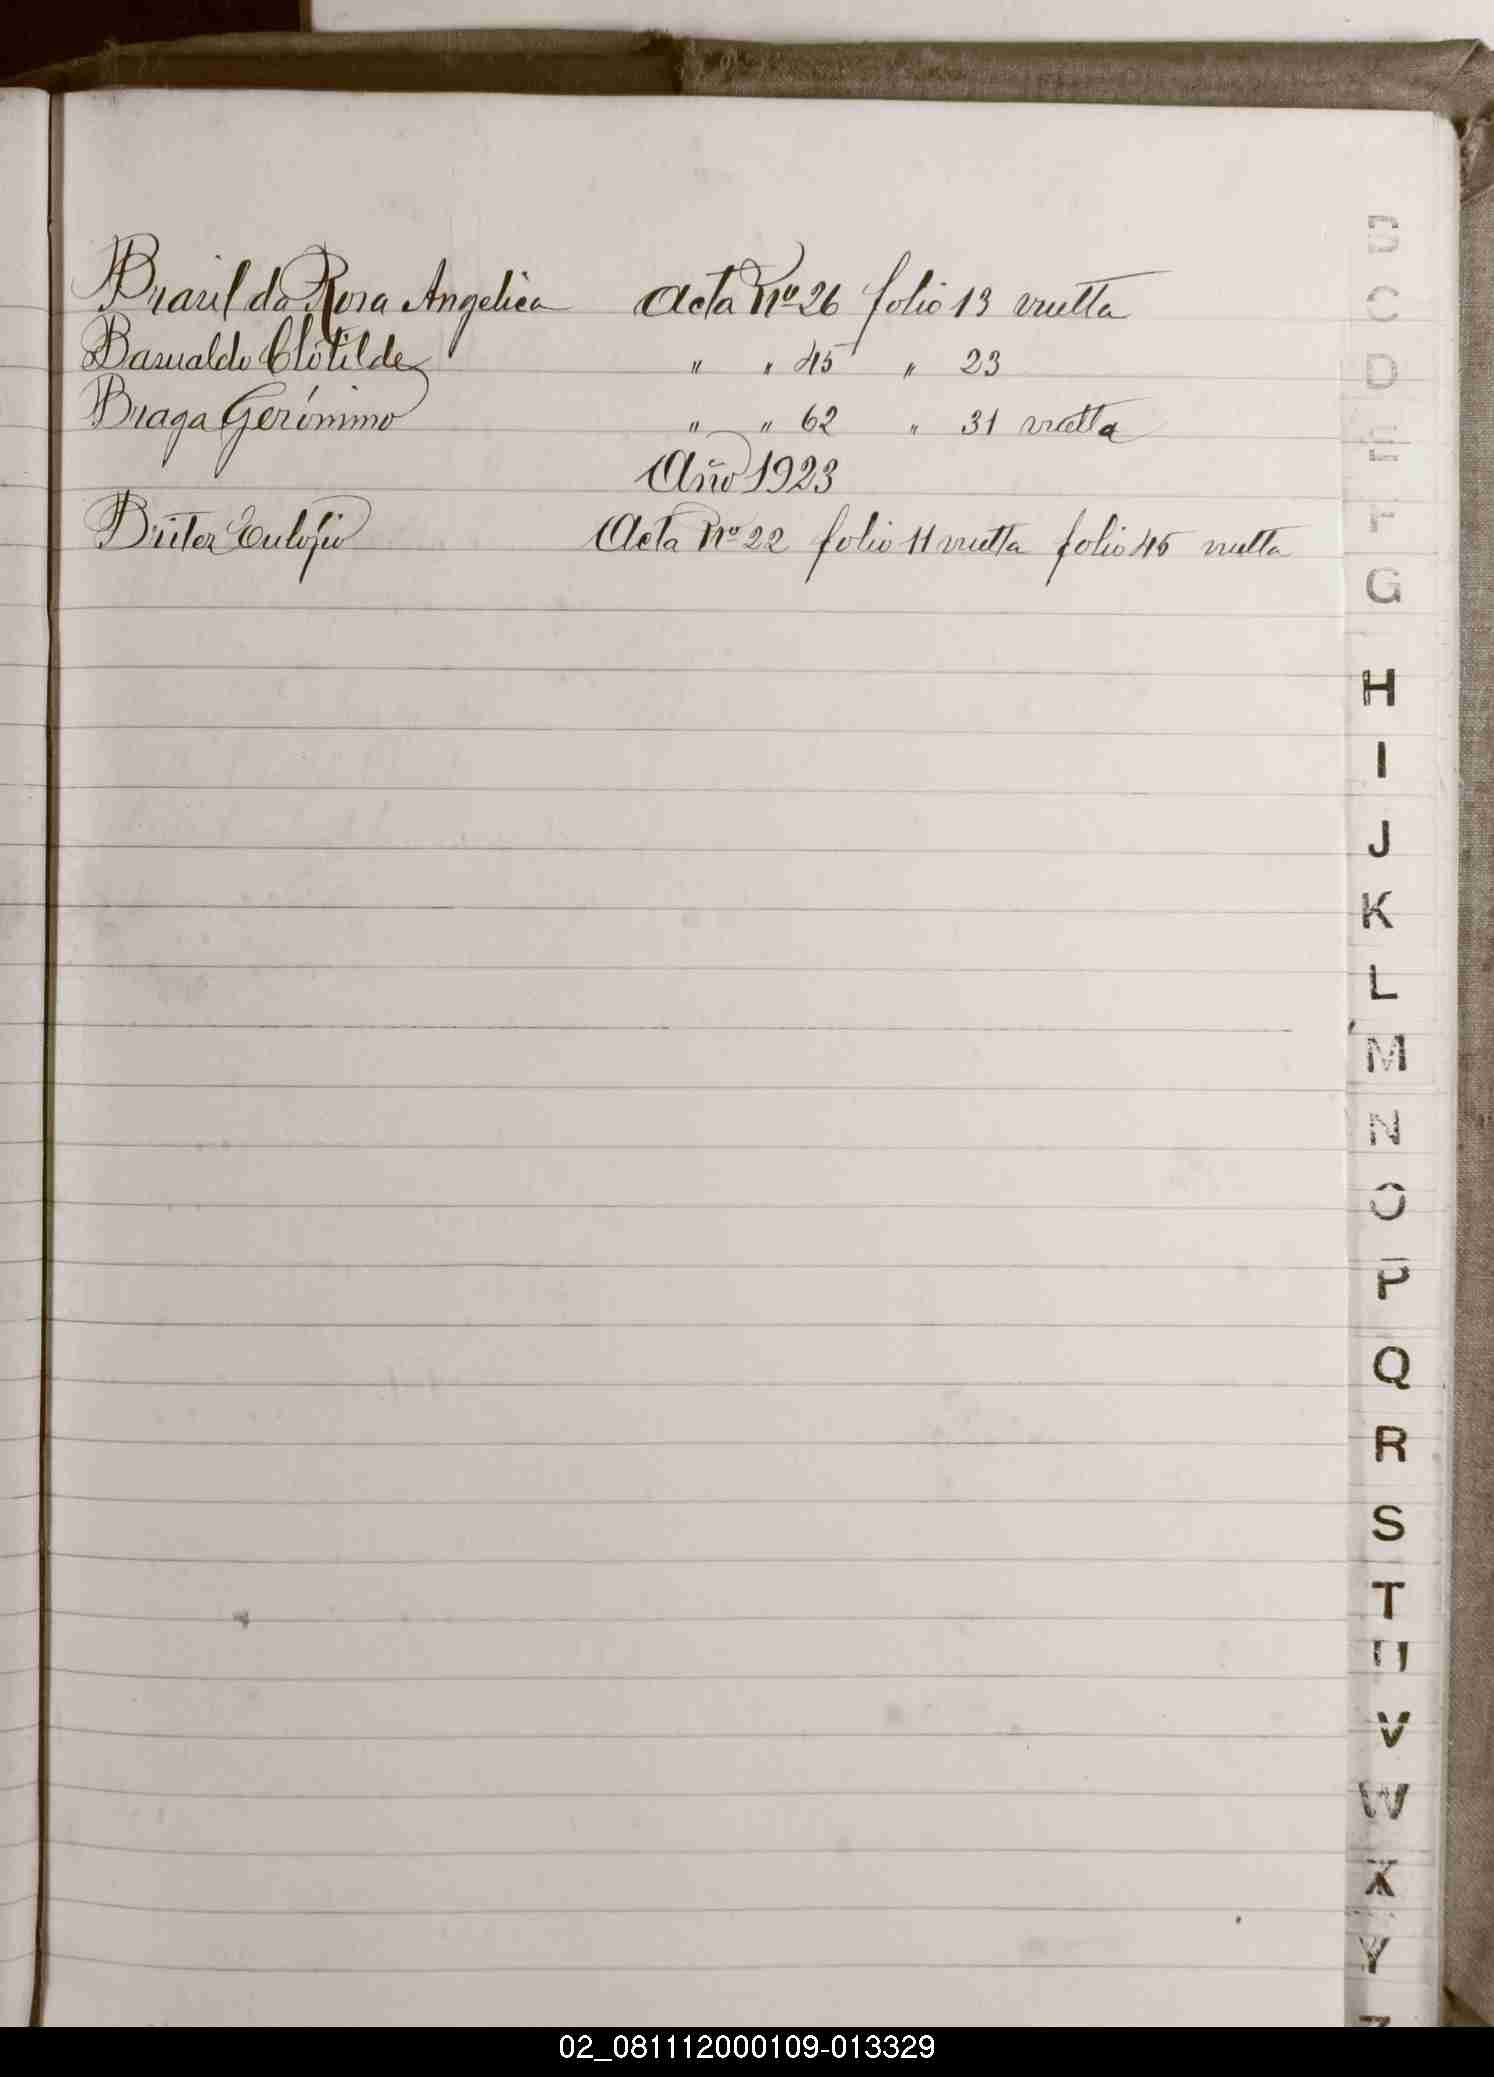 Brasil da Rosa Angelica Acta Nº 26 folio 13 vuelta
Basualdo Clotilde " " 45 " 23
Braga Gerónimo " " 62 " 31 vuelta
Año 1923
Acta Nº 22 folio 11 vuelta folio 45 vuelta
B
C
D
E
F
G
H
I
J
K
L
M
N
O
P
Q
R
S
T
U
V
W
X
Y
Z
02_081112000109-013329